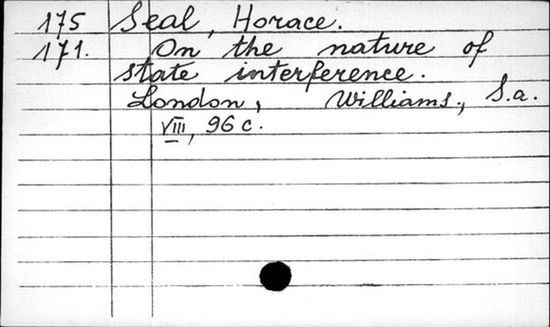 175 Seal, Horace.
171. On the nature of
state interference.
London, Williams, S.a.
VIII, 96 c.